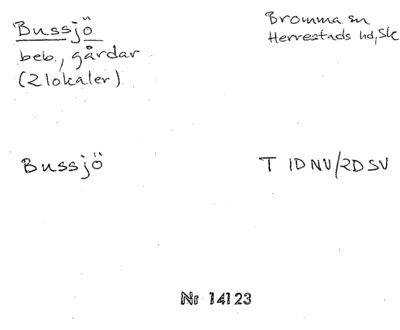 Bussjö
beb., gårdar
(2 lokaler)
Bromma sn
Herrestads hd, Sk
Bussjö
T 1D NV/2D SV
Nr 14123